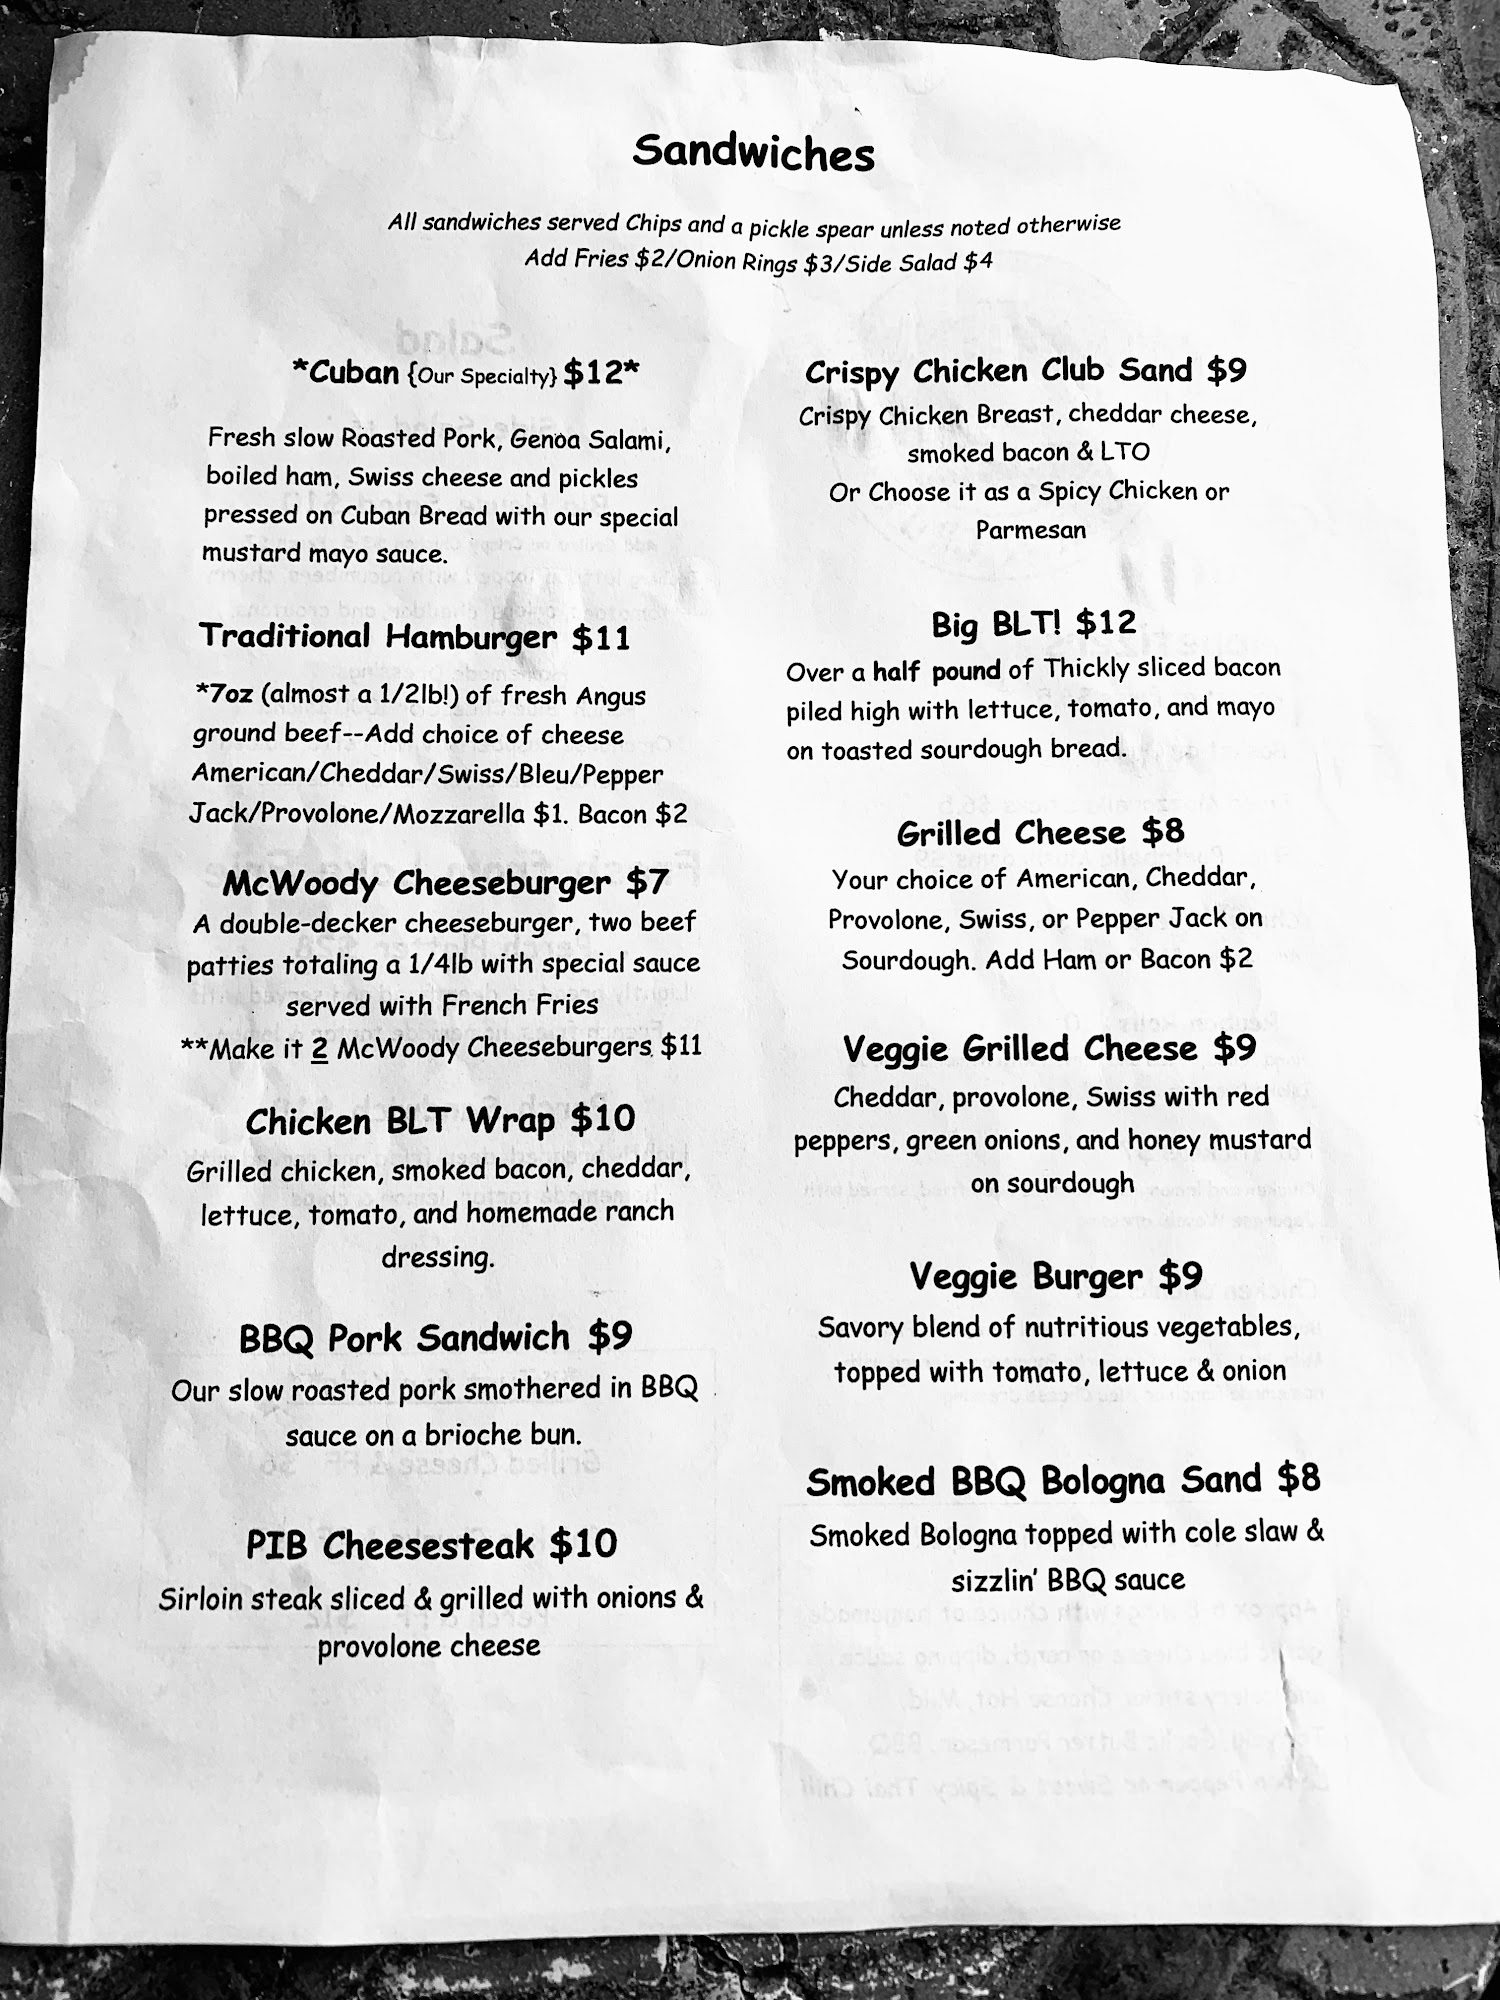 Sandwiches
All sandwiches served Chips and a pickle spear unless noted otherwise
Add Fries $2/Onion Rings $3/Side Salad $4
*Cuban {Our Specialty} $12*
Fresh slow Roasted Pork, Genoa Salami,
boiled ham, Swiss cheese and pickles
pressed on Cuban Bread with our special
mustard mayo sauce.
Traditional Hamburger $11
*7oz (almost a 1/2lb!) of fresh Angus
ground beef--Add choice of cheese
American/Cheddar/Swiss/Bleu/Pepper
Jack/Provolone/Mozzarella $1. Bacon $2
McWoody Cheeseburger $7
A double-decker cheeseburger, two beef
patties totaling a 1/4lb with special sauce
served with French Fries
**Make it 2 McWoody Cheeseburgers $11
Chicken BLT Wrap $10
Grilled chicken, smoked bacon, cheddar,
lettuce, tomato, and homemade ranch
dressing.
BBQ Pork Sandwich $9
Our slow roasted pork smothered in BBQ
sauce on a brioche bun.
PIB Cheesesteak $10
Sirloin steak sliced & grilled with onions &
provolone cheese
Crispy Chicken Club Sand $9
Crispy Chicken Breast, cheddar cheese,
smoked bacon & LTO
Or Choose it as a Spicy Chicken or
Parmesan
Big BLT! $12
Over a half pound of Thickly sliced bacon
piled high with lettuce, tomato, and mayo
on toasted sourdough bread.
Grilled Cheese $8
Your choice of American, Cheddar,
Provolone, Swiss, or Pepper Jack on
Sourdough. Add Ham or Bacon $2
Veggie Grilled Cheese $9
Cheddar, provolone, Swiss with red
peppers, green onions, and honey mustard
on sourdough
Veggie Burger $9
Savory blend of nutritious vegetables,
topped with tomato, lettuce & onion
Smoked BBQ Bologna Sand $8
Smoked Bologna topped with cole slaw &
sizzlin' BBQ sauce